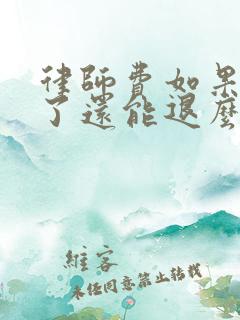 律師費如果
了還能退麼
維客
未任同意禁止转载